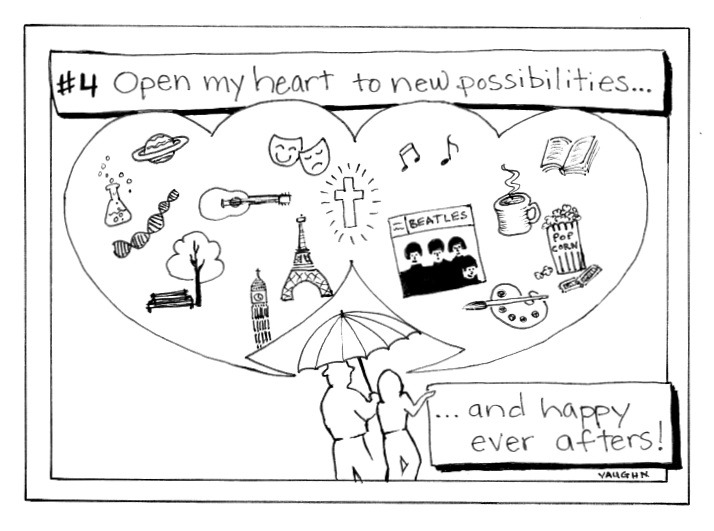 #4 Open my heart to new possibilities...
BEATLES
POP
CORN
...and happy
ever afters!
VAUGHN